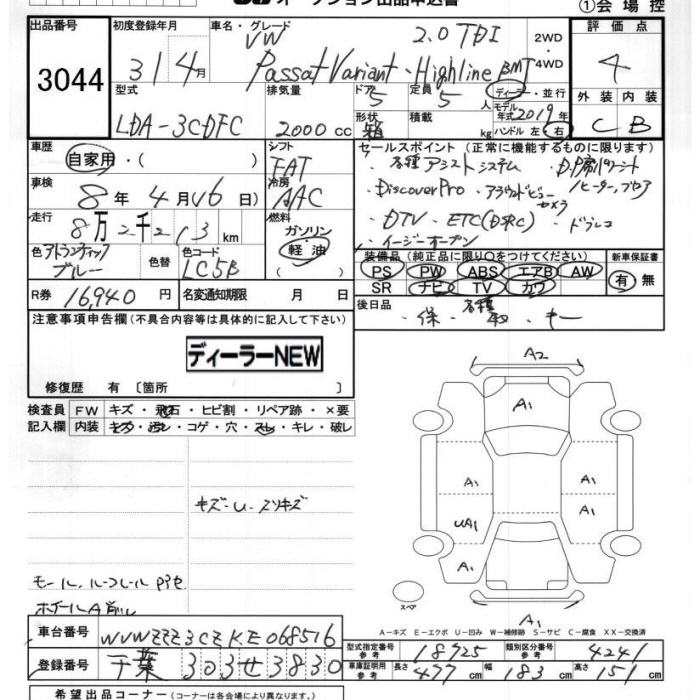 オークション出品申込書
①会場控
出品番号
3044
初度登録年月
31 4月
車名・グレード
VW 2.0 TDI
Passat Variant・Highline BMT
2WD・4WD
評価点
4
外装 内装
C B
型式
LDA-3CDFC
排気量
2000 cc
ドア
5
定員
5人
形状
積載
kg
ディーラー・並行
モデル年式 2019年
ハンドル 左・右
車歴
自家用・( )
シフト
FAT
車検
8年 4月(16日)
冷房
AAC
走行
8万2千213km
燃料
ガソリン・軽油
色 アトランティックブルー
色替
色コード
LC5B
R券 16,940円
名変通知期限 月 日
セールスポイント (正常に機能するものに限ります)
・各種アシストシステム
・DiscoverPro ・アラウンドビューカメラ
・DTV ・ETC(DSRC) ・ドラレコ
・イージーオープン
装備品 (純正品に限り○をつけてください)
PS PW ABS エアB AW
SR ナビ TV カワ
新車保証書
有・無
後日品
・保・各種・キー
注意事項申告欄(不具合内容等は具体的に記入して下さい)
ディーラーNEW
修復歴 有 〔箇所 〕
検査員記入欄
FW キズ・飛石・ヒビ割・リペア跡・×要
内装 キズ・汚レ・コゲ・穴・スレ・キレ・破レ
キズ・U・スリキズ
モール、ルーフレール
ホイールA
A2
A1
A1
A1
UA1
A1
A1
A1
A1
スペア
A-キズ E-エクボ U-凹み W-補修跡 S-サビ C-腐食 XX-交換済
車台番号 WVWZZZ3CZKE068516
登録番号 千葉 303 せ 3830
型式指定番号 参考 18925
類別区分番号 参考 4241
車庫証明用 参考 長さ 477cm 幅 183cm 高さ 151cm
希望出品コーナー (コーナーは各会場により異なります。)